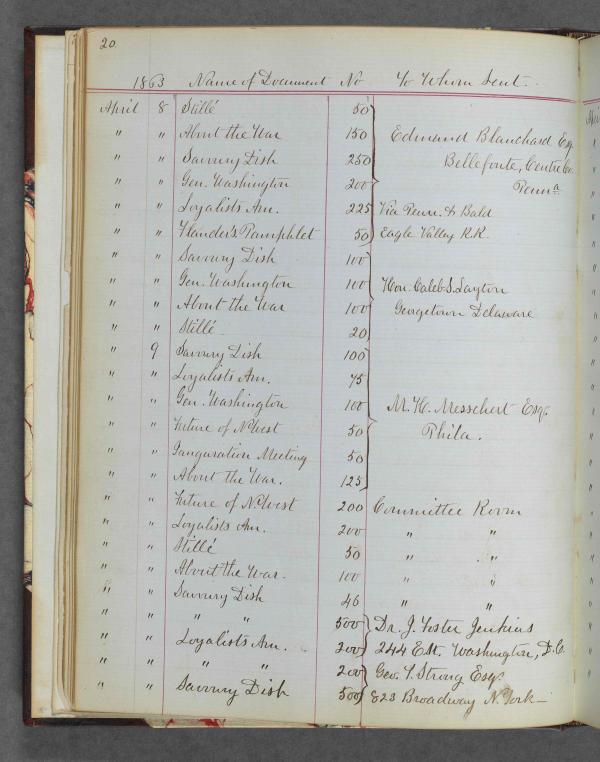 20.
1863 Name of Document No To Whom Sent.
April 8 Stillé 50
" " About the War 150 Edmund Blanchard Esq.
" " Savoury Dish 250 Bellefonte, Centre Co.
" " Gen. Washington 200 Penna
" " Loyalists Am. 225 Via Penn. & Bald
" " Kander's Pamphlet 50 Eagle Valley R.R.
" " Savoury Dish 100
" " Gen. Washington 100 Hon. Caleb S. Layton
" " About the War 100 Georgetown Delaware
" " Stillé 20
" 9 Savoury Dish 100
" " Loyalists Am. 75
" " Gen. Washington 100 M. H. Messchert Esq.
" " Future of N. West 50 Phila.
" " Inauguration Meeting 50
" " About the War. 125
" " Future of N. West 200 Committee Room
" " Loyalists Am. 200 " "
" " Stillé 50 " "
" " About the War. 100 " "
" " Savoury Dish 46 " "
" " " " 500 Dr. J. Foster Jenkins
" " Loyalists Am. 200 244 F St. Washington, D.C.
" " " " 200 Geo. T. Strong Esq.
" " Savoury Dish 500 823 Broadway N. York